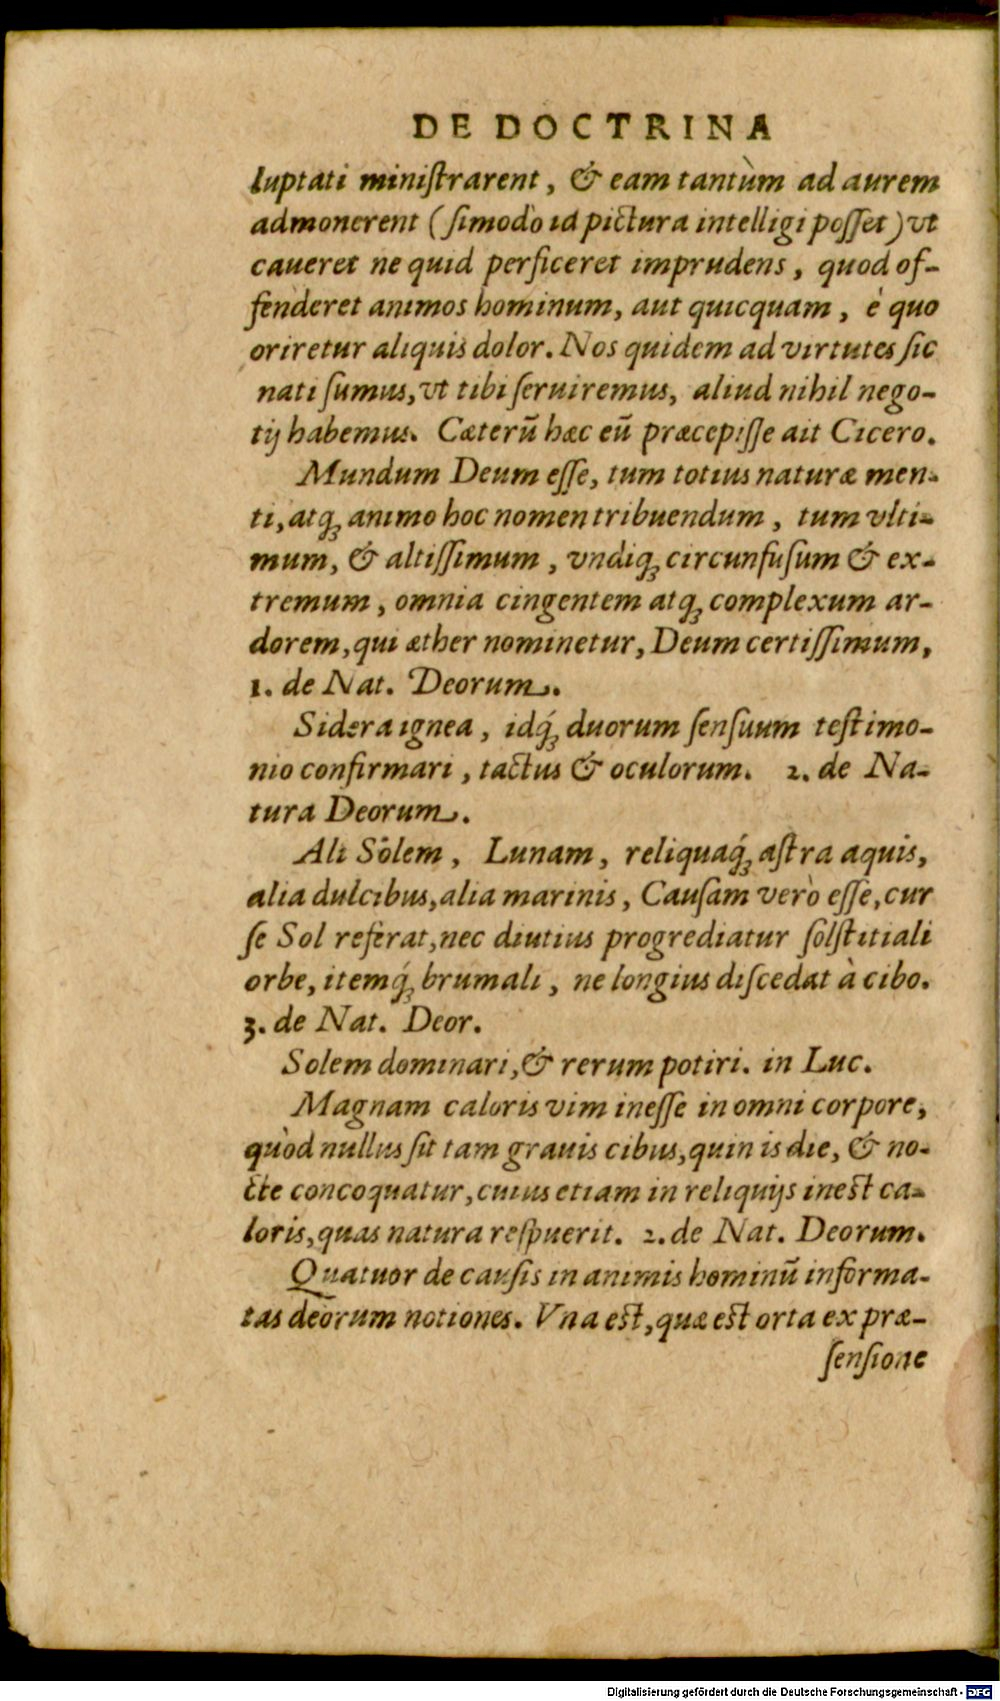 DE DOCTRINA
luptati miniſtrarent, & eam tantùm ad aurem
admonerent (ſimodò id pictura intelligi poſſet) vt
caueret ne quid perficeret imprudens, quod of-
fenderet animos hominum, aut quicquam, è quo
oriretur aliquis dolor. Nos quidem ad virtutes ſic
nati ſumus, vt tibi ſeruiremus, aliud nihil nego-
tij habemus. Cæterũ hæc eũ præcepiſſe ait Cicero.
Mundum Deum eſſe, tum totius naturæ men-
ti, atq; animo hoc nomen tribuendum, tum vlti-
mum, & altiſſimum, vndiq; circunfuſum & ex-
tremum, omnia cingentem atq; complexum ar-
dorem, qui æther nominetur, Deum certiſſimum,
1. de Nat. Deorum.
Sidera ignea, idq́; duorum ſenſuum teſtimo-
nio confirmari, tactus & oculorum. 2. de Na-
tura Deorum.
Ali Sólem, Lunam, reliquaq́; aſtra aquis,
alia dulcibus, alia marinis, Cauſam verò eſſe, cur
ſe Sol referat, nec diutius progrediatur ſolſtitiali
orbe, itemq́; brumali, ne longius diſcedat à cibo.
3. de Nat. Deor.
Solem dominari, & rerum potiri. in Luc.
Magnam caloris vim ineſſe in omni corpore,
quòd nullus ſit tam grauis cibus, quin is die, & no-
cte concoquatur, cuius etiam in reliquijs ineſt ca-
loris, quas natura reſpuerit. 2. de Nat. Deorum.
Quatuor de cauſis in animis hominũ informa-
tas deorum notiones. Vna eſt, quæ eſt orta ex præ-
ſenſione
Digitalisierung gefördert durch die Deutsche Forschungsgemeinschaft - DFG